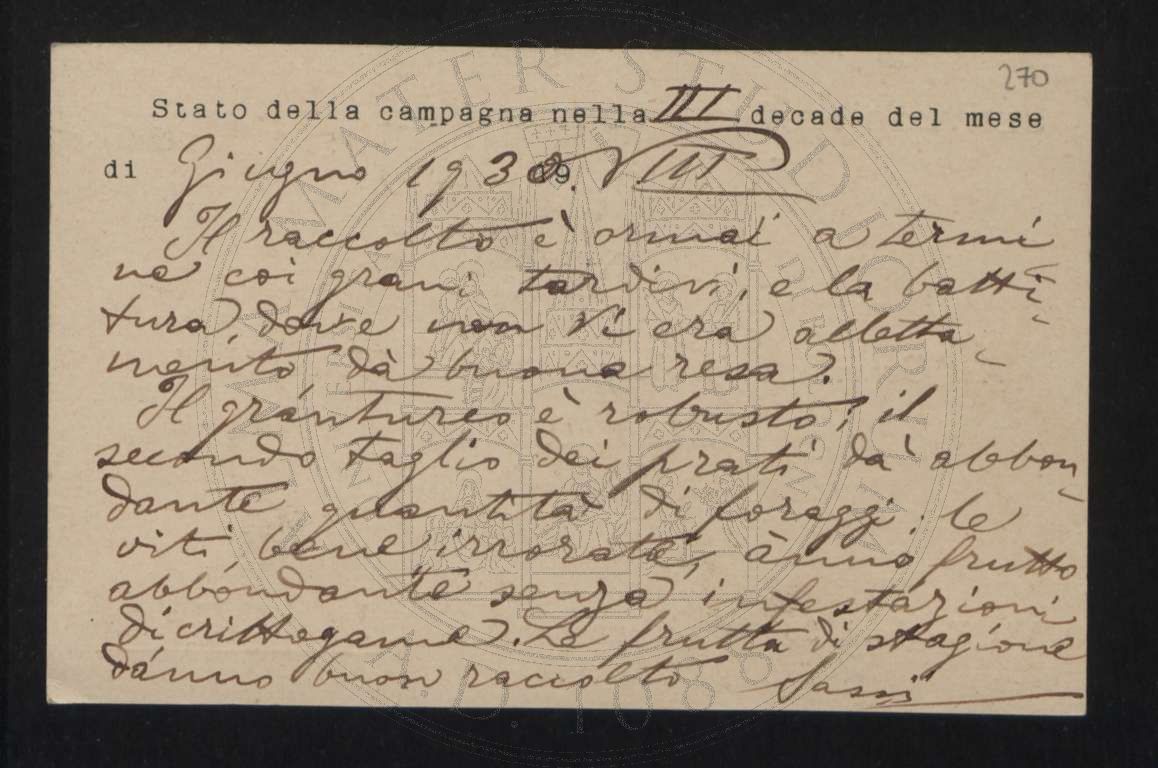 270
Stato della campagna nella III decade del mese
di Giugno 1930. VIII
Il raccolto è ormai a termi
ne coi grani tardivi, e la batti-
tura dove non vi era alletta-
mento dà buona resa.
Il granturco è robusto; il
secondo taglio dei prati dà abbon-
dante quantità di foraggi. le
viti bene irrorate, ànno frutto
abbondante senza infestazioni
di crittogame. Le frutta di stagione
dànno buon raccolto Sassi
ALMA MATER STUDIORUM
A.D. 1088